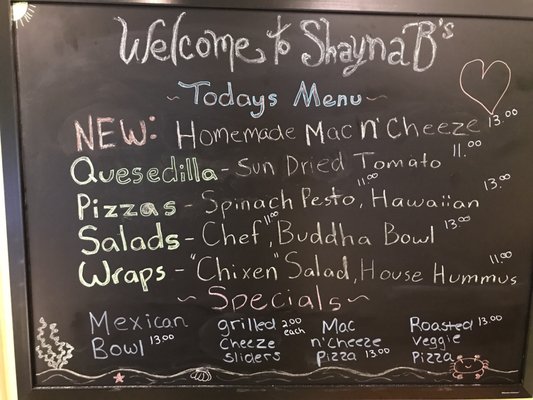 Welcome to ShaynaB's
~Todays Menu~
NEW: Homemade Mac n' Cheeze 13.00
Quesedilla - Sun Dried Tomato 11.00
Pizzas - Spinach Pesto 11.00, Hawaiian 13.00
Salads - Chef 11.00, Buddha Bowl 13.00
Wraps - "Chixen" Salad, House Hummus 11.00
~Specials~
Mexican Bowl 13.00
grilled Cheeze sliders 2.00 each
Mac n'Cheeze Pizza 13.00
Roasted Veggie Pizza 13.00